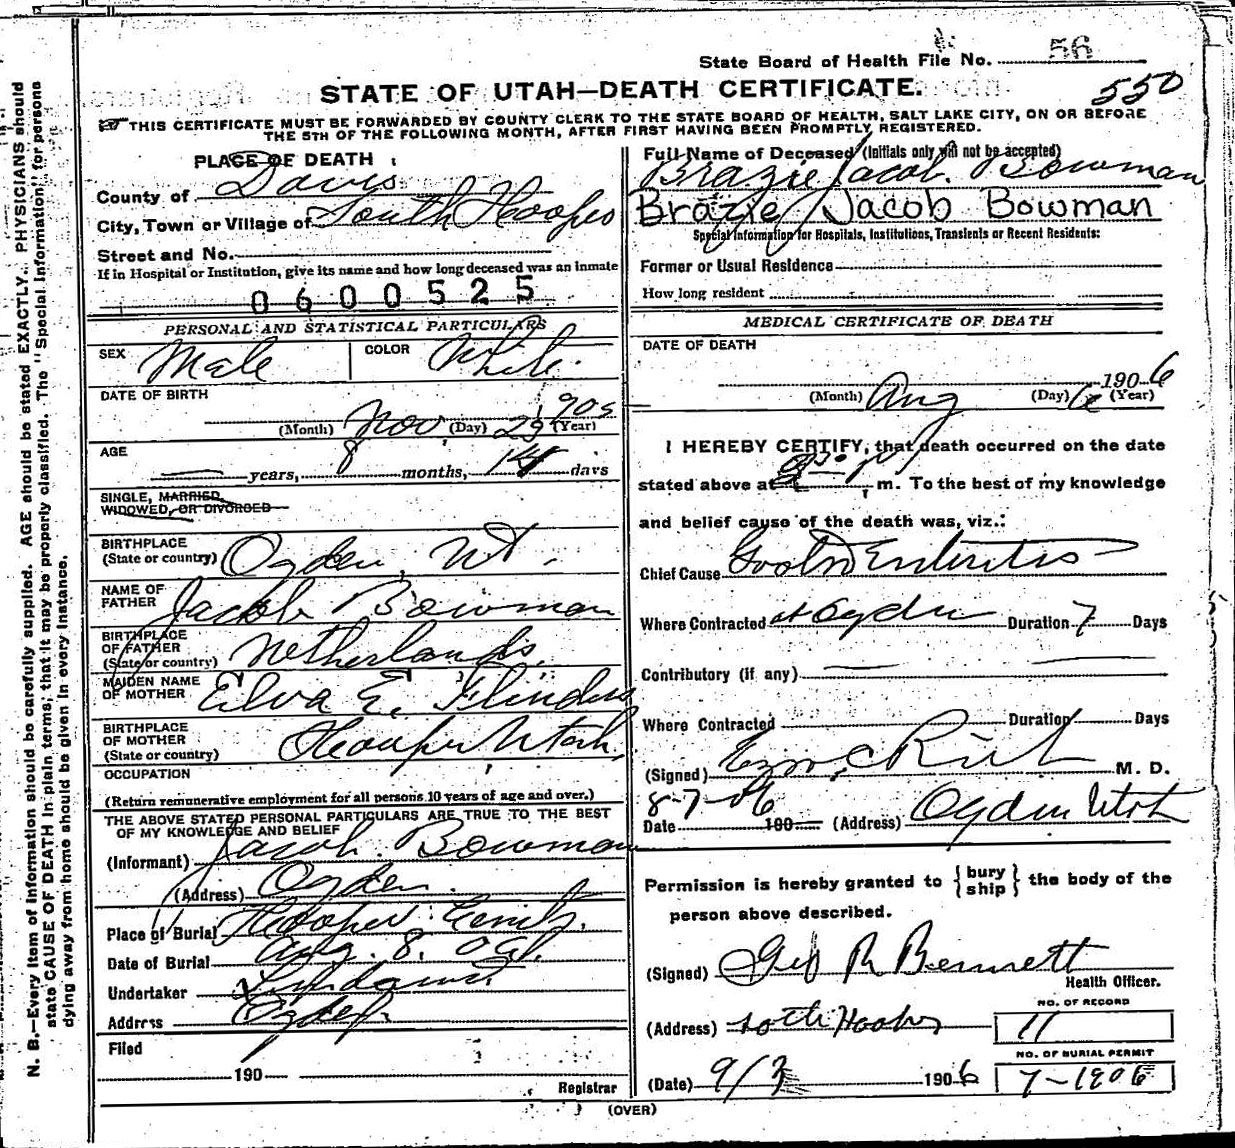 State Board of Health File No. 56
550
STATE OF UTAH—DEATH CERTIFICATE.
THIS CERTIFICATE MUST BE FORWARDED BY COUNTY CLERK TO THE STATE BOARD OF HEALTH, SALT LAKE CITY, ON OR BEFORE
THE 5TH OF THE FOLLOWING MONTH, AFTER FIRST HAVING BEEN PROMPTLY REGISTERED.
N. B.—Every item of information should be carefully supplied. AGE should be stated EXACTLY. PHYSICIANS should
state CAUSE OF DEATH in plain terms, that it may be properly classified. The "Special Information" for persons
dying away from home should be given in every instance.
PLACE OF DEATH
County of Davis
City, Town or Village of South Hooper
Street and No.
If in Hospital or Institution, give its name and how long deceased was an inmate
0600525
PERSONAL AND STATISTICAL PARTICULARS
SEX Male COLOR White
DATE OF BIRTH
1905
(Month) Nov (Day) 23 (Year)
AGE
years, 8 months, 14 days
SINGLE, MARRIED,
WIDOWED, OR DIVORCED
BIRTHPLACE
(State or country) Ogden, Ut.
NAME OF
FATHER Jacob Bowman
BIRTHPLACE
OF FATHER
(State or country) Netherlands.
MAIDEN NAME
OF MOTHER Elva E. Flinders
BIRTHPLACE
OF MOTHER
(State or country) Hooper Utah,
OCCUPATION
(Return remunerative employment for all persons 10 years of age and over.)
THE ABOVE STATED PERSONAL PARTICULARS ARE TRUE TO THE BEST
OF MY KNOWLEDGE AND BELIEF
(Informant) Jacob Bowman
(Address) Ogden.
Place of Burial Hooper Cemty.
Date of Burial Aug. 8. 06
Undertaker
Address Ogden
Filed
190
Registrar
Full Name of Deceased (Initials only will not be accepted)
Brazie Jacob. Bowman
Brazie Jacob Bowman
Special Information for Hospitals, Institutions, Transients or Recent Residents:
Former or Usual Residence
How long resident
MEDICAL CERTIFICATE OF DEATH
DATE OF DEATH
1906
(Month) Aug (Day) 6 (Year)
I HEREBY CERTIFY, that death occurred on the date
stated above at m. To the best of my knowledge
and belief cause of the death was, viz.:
Chief Cause Gastro Enteritis
Where Contracted at Ogden Duration 7 Days
Contributory (if any)
Where Contracted Duration Days
(Signed) Ezra C Rich M. D.
8-7-06
Date 190 (Address) Ogden Utah
Permission is hereby granted to { bury ship } the body of the
person above described.
(Signed) Geo R Bennett
Health Officer.
(Address) South Hooper
NO. OF RECORD
11
NO. OF BURIAL PERMIT
7-1906
(Date) 9/3 1906
(OVER)